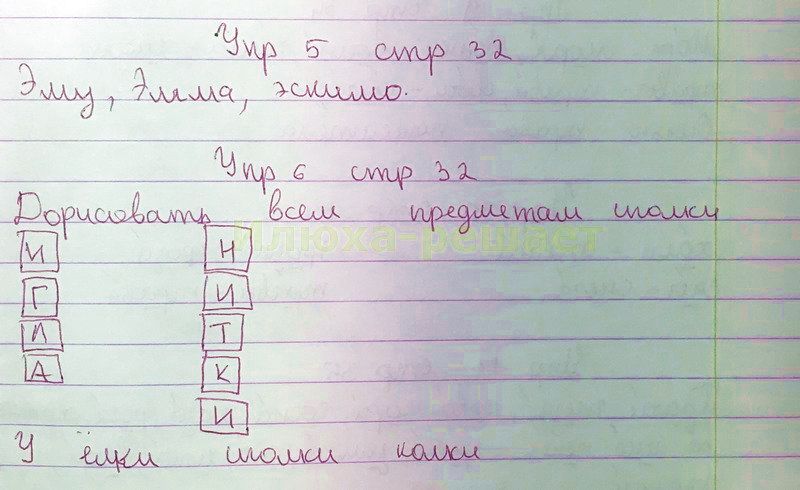 Упр 5 стр 32
Эму, Эмма, эскимо.
Упр 6 стр 32
Дорисовать всем предметам иголку
Илюха-решает
И Н
Г И
Л Т
А К
И
У ёлки иголки колки